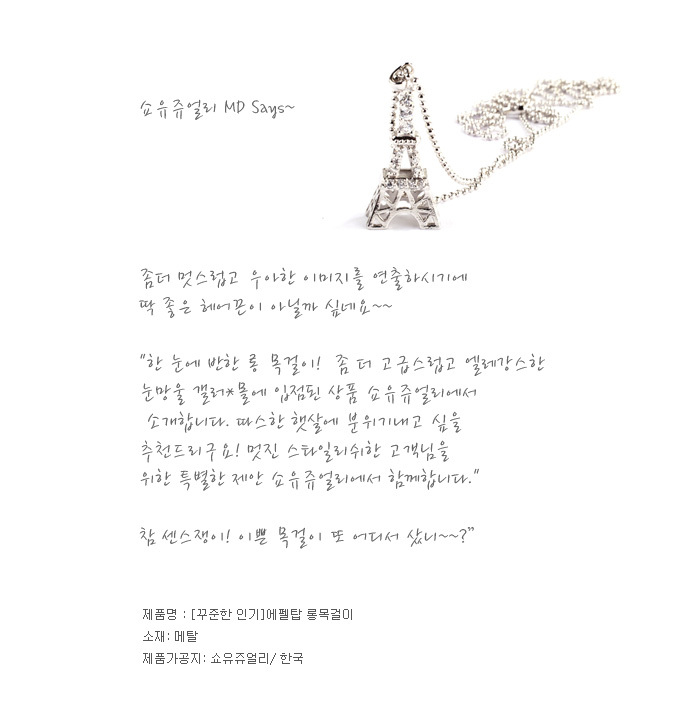 쇼유쥬얼리 MD Says~
좀더 멋스럽고 우아한 이미지를 연출하시기에
딱 좋은 헤어끈이 아닐까 싶네요~~
"한 눈에 반한 롱 목걸이! 좀 더 고급스럽고 엘레강스한
눈망울 갤러*몰에 입점된 상품 쇼유쥬얼리에서
소개합니다. 따스한 햇살에 분위기내고 싶을
추천드리구요! 멋진 스타일리쉬한 고객님을
위한 특별한 제안 쇼유쥬얼리에서 함께합니다."
참 센스쟁이! 이쁜 목걸이 또 어디서 샀니~~?"
제품명 : [꾸준한 인기]에펠탑 롱목걸이
소재: 메탈
제품가공지: 쇼유쥬얼리/ 한국